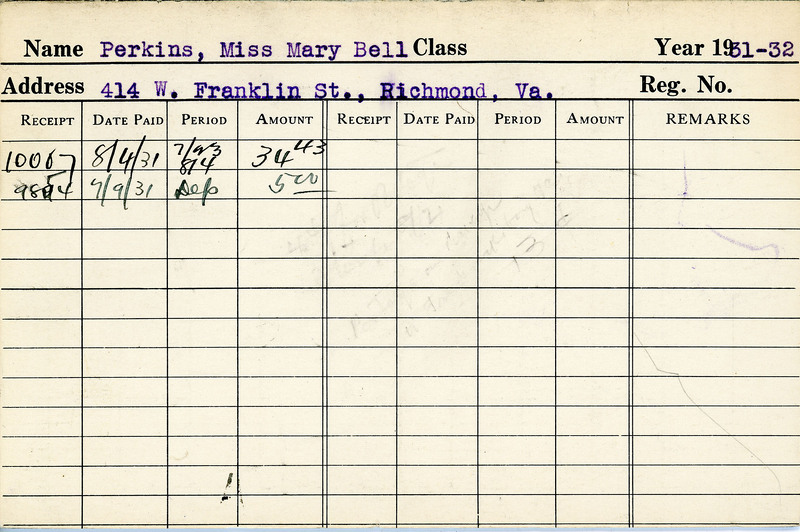 Name Perkins, Miss Mary Bell Class Year 1931-32
Address 414 W. Franklin St., Richmond, Va. Reg. No.
RECEIPT DATE PAID PERIOD AMOUNT RECEIPT DATE PAID PERIOD AMOUNT REMARKS
10007 8/4/31 7/23 8/4 34 43
7/9/31 Dep 5 00